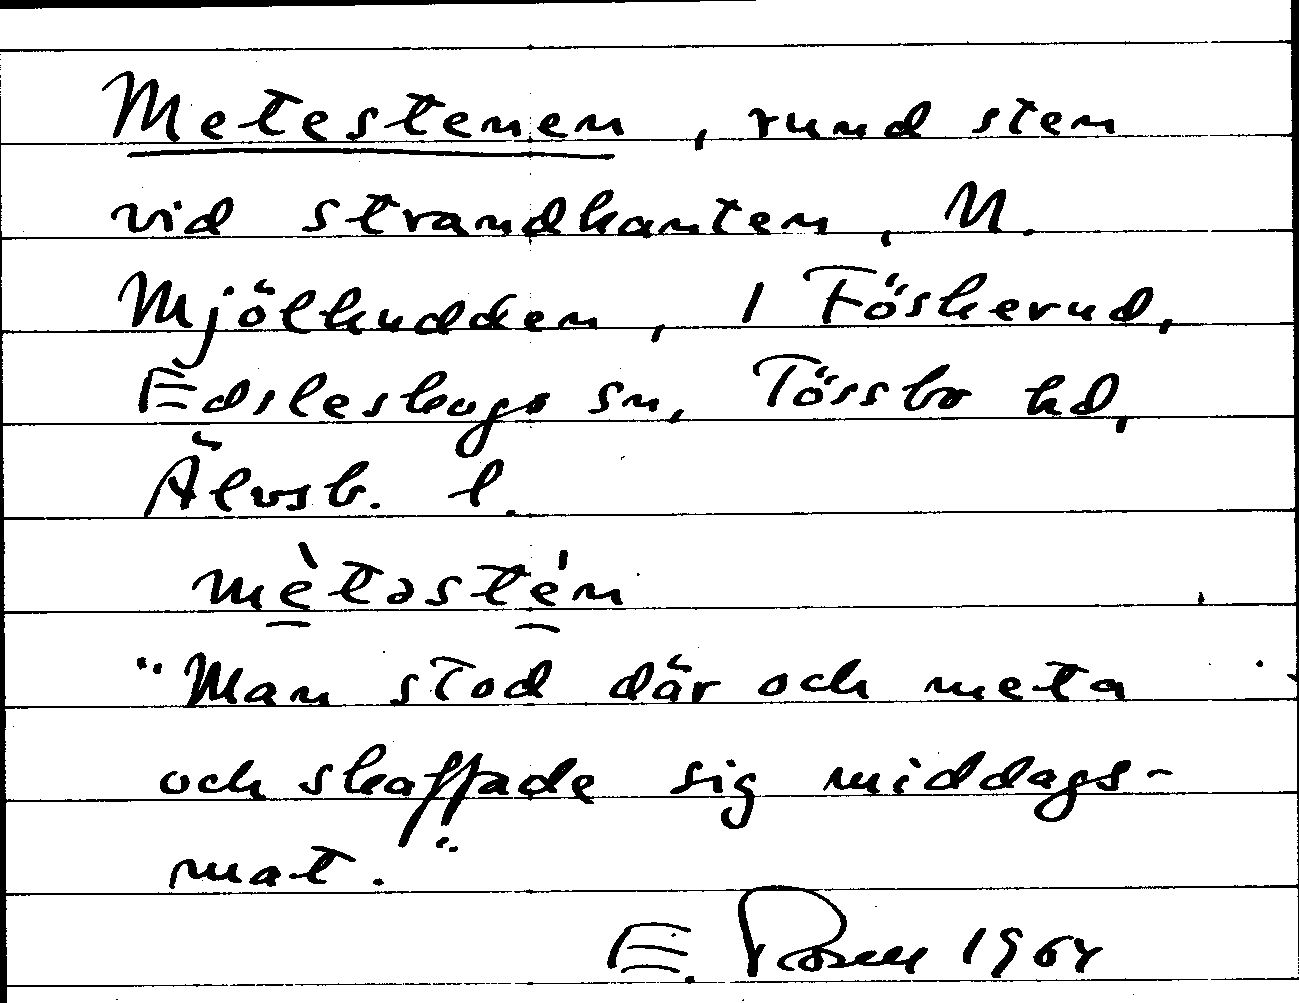 Metestenen, rund sten
vid strandkanten, N.
Mjölkudden, 1 Föskerud,
Edsleskogs sn, Tössbo hd,
Älvsb. l.
mètəsté̄n
"Man stod där och meta
och skaffade sig middags-
mat."
E. Rosell 1964